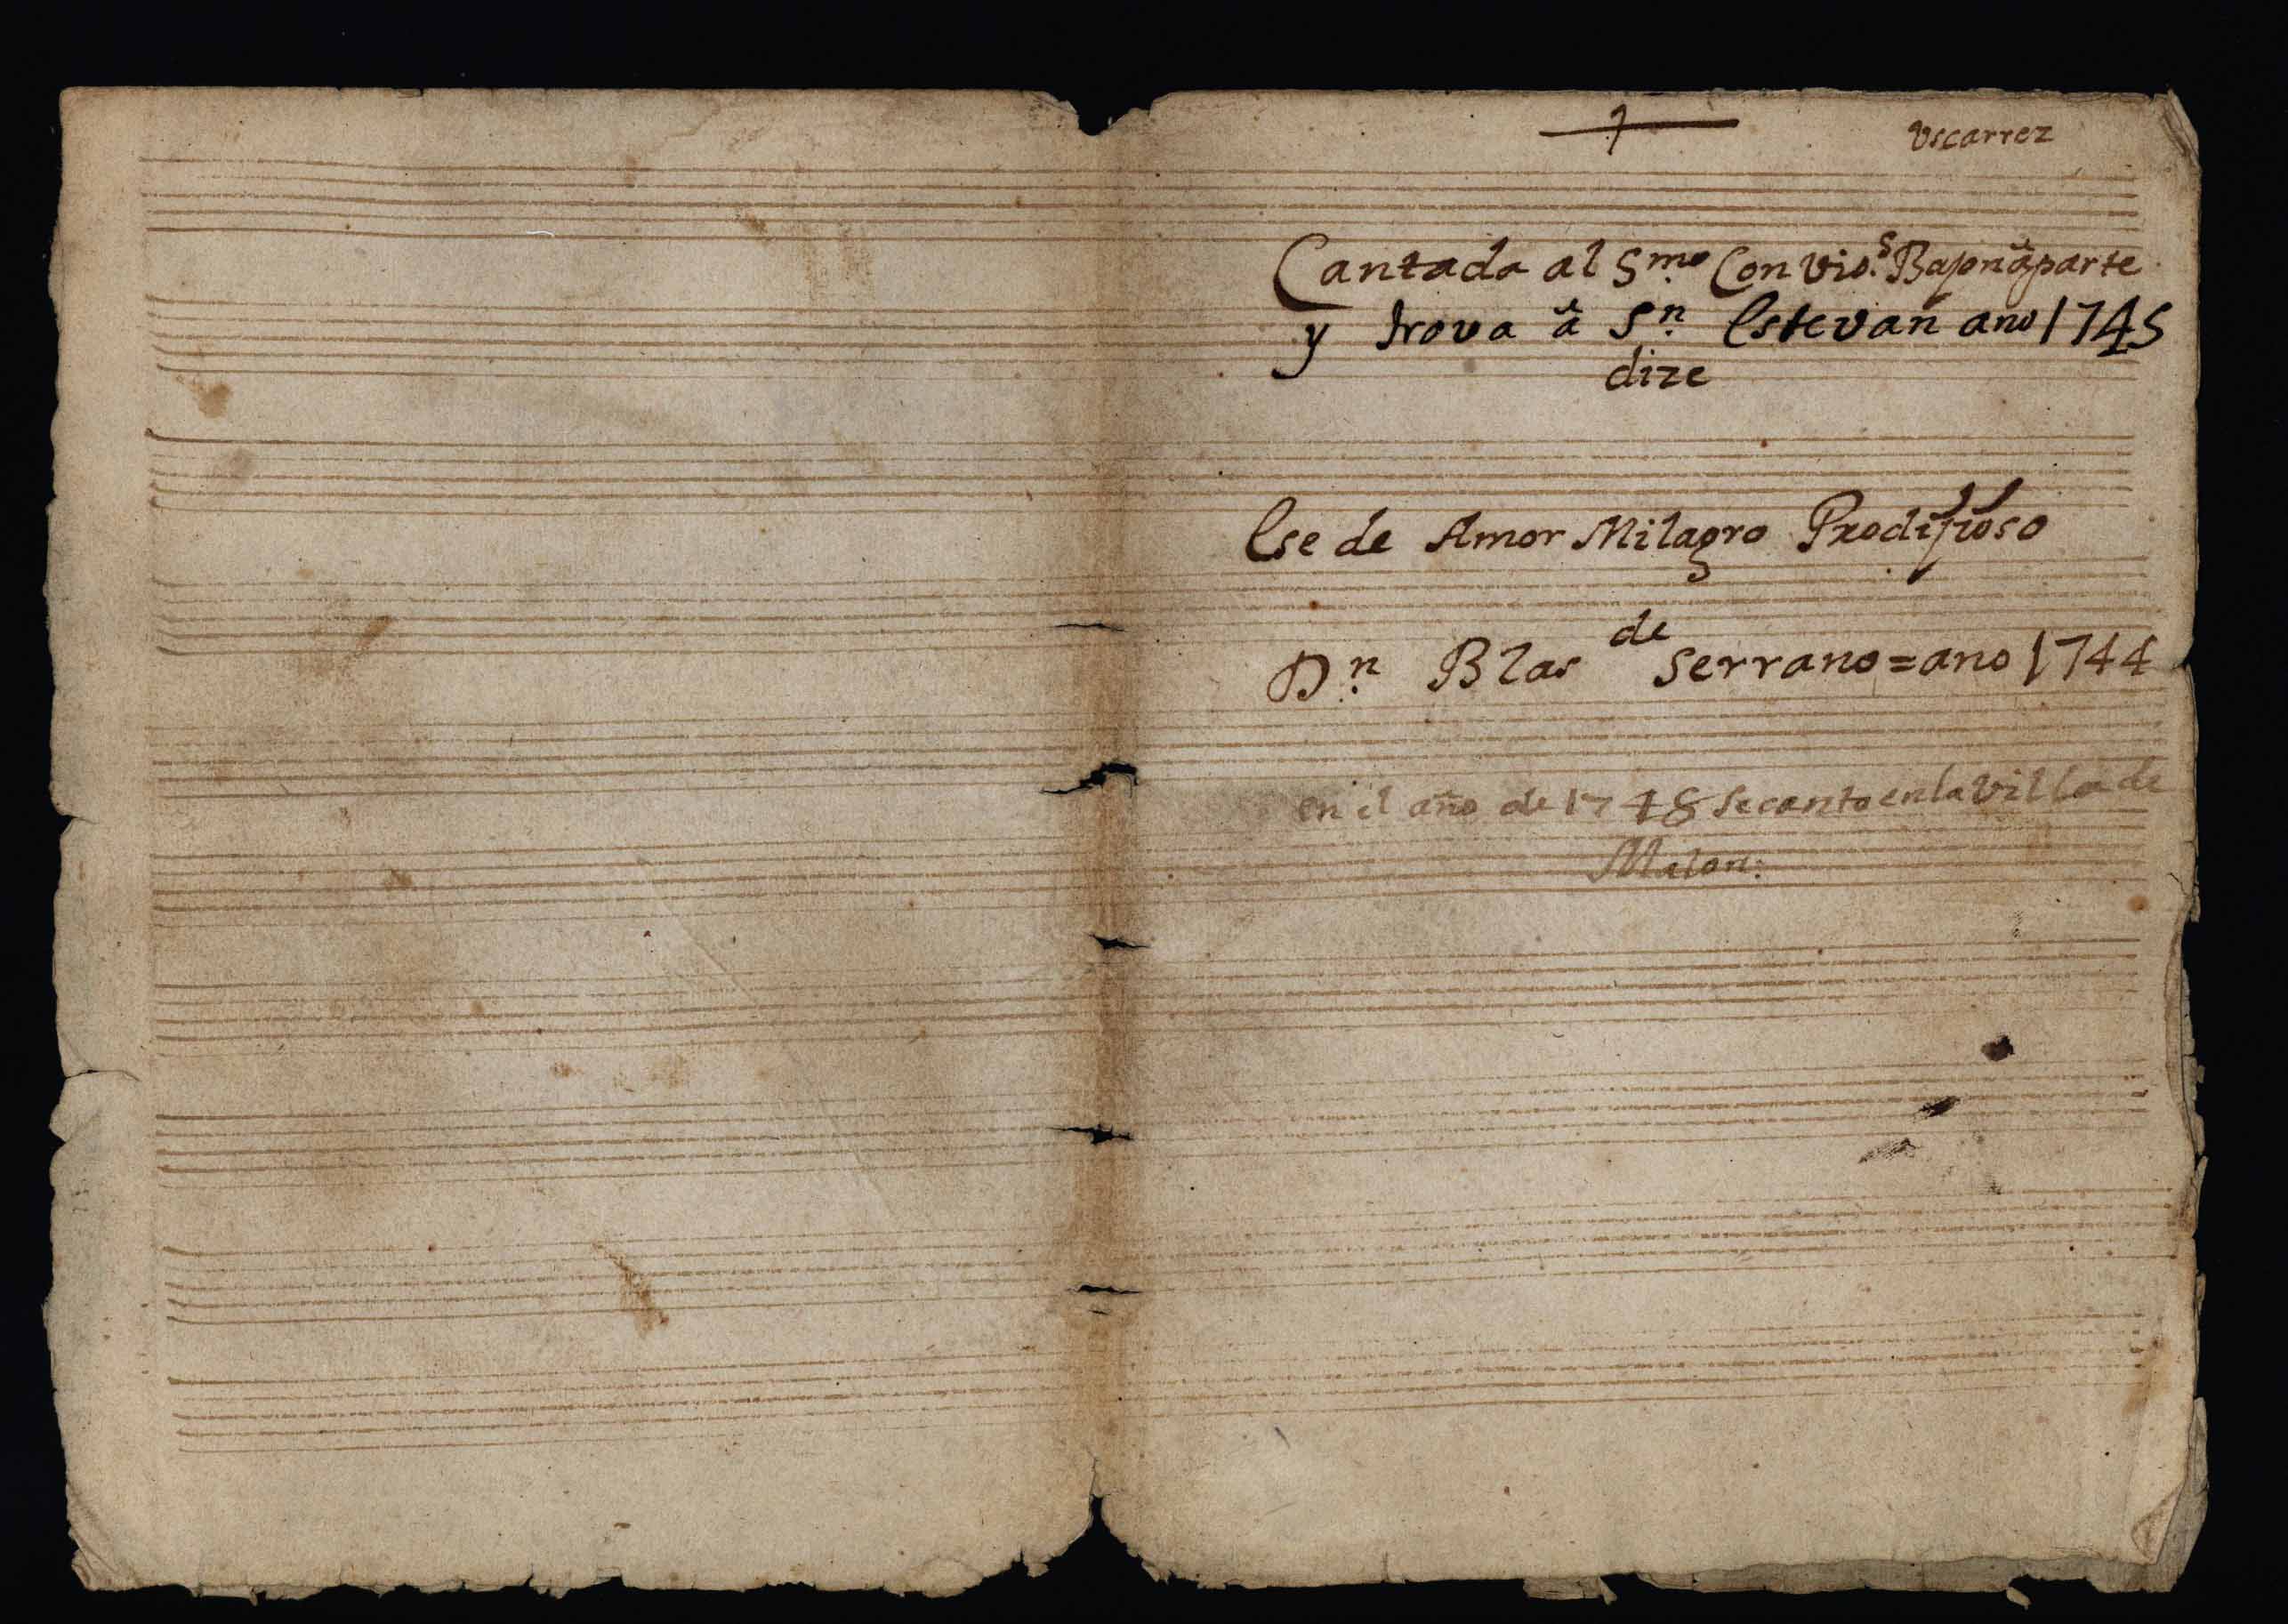 Uscarrez
Cantada al S.mo Con Vio.s Bajon à parte
y trova à S.n Estevan año 1745
dize
Ese de Amor Milagro Prodijioso
D.n Blas de Serrano = ano 1744
en el año de 1748 se canto en la Villa de
Malon: